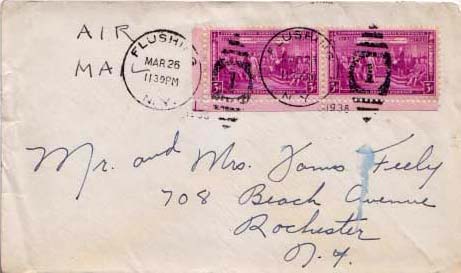 AIR
MAIL
FLUSHING
MAR 26
1130PM
N.Y.
FLUSHING
N.Y.
1938
3¢
3¢
Mr. and Mrs. Feely
708 Beach Avenue
Rochester
N.Y.